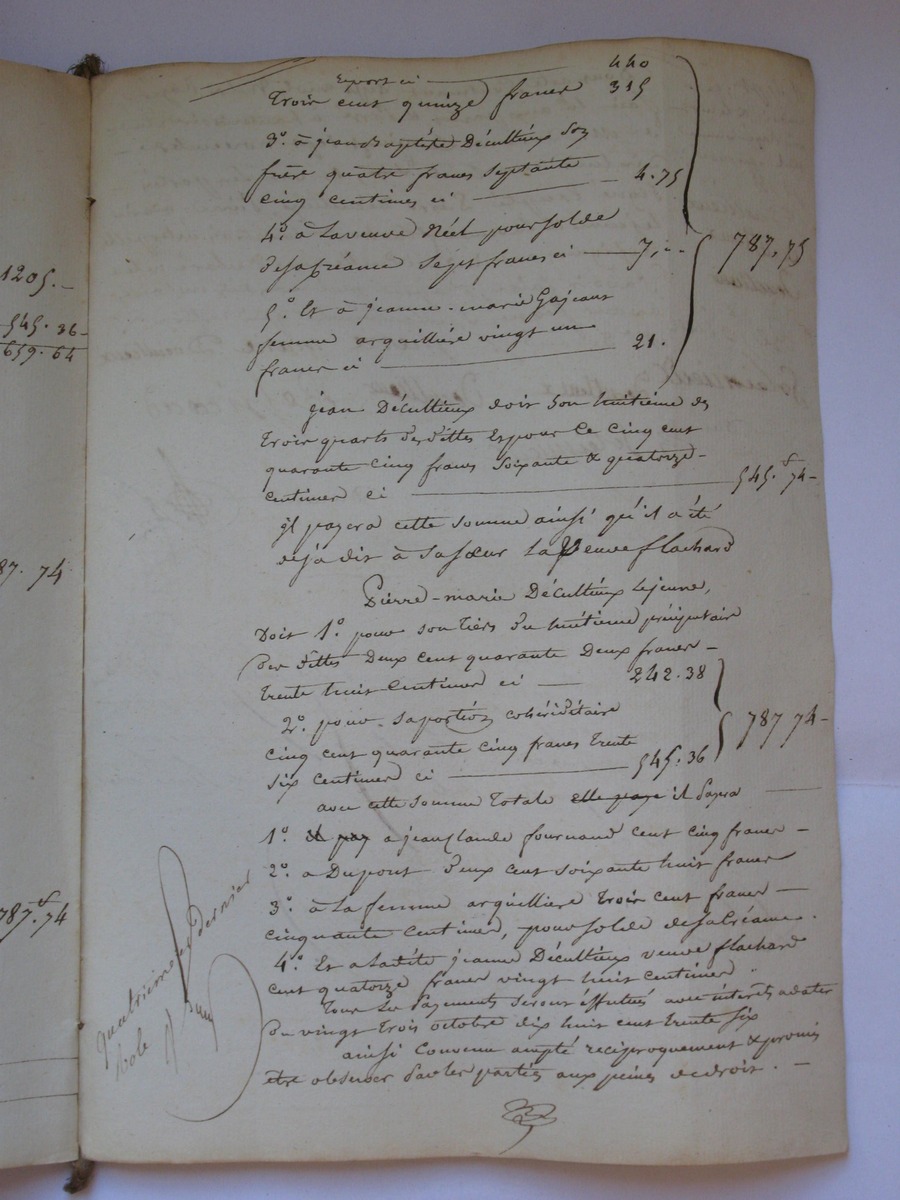 1205.-
545.36-
659.64
87.74
787.f74
Report ci 440
Trois cent quinze francs 315
3.o à jean Baptiste Décultieux son
frère quatre francs septante
cinq centimes ci 4.75
4.o à la veuve Réel pour solde
de sa créance sept francs ci 7,..
787,75
5.o Et à jeanne-marie Gajeaux
femme arquillière vingt un
francs ci 21.
jean Décultieux doit son huitième des
trois quarts des dittes Espour ce cinq cent
quarante cinq francs soixante & quatorze-
centimes ci 545.f74-
il payera cette somme ainsi qu'il a été
déja dit à sa sœur la veuve flachard
Pierre-marie Décultieux le jeune,
Doit 1.o pour son tiers du huitième préciputaire
des dittes Deux cent quarante Deux francs-
trente huit centimes ci 242.38
2.o pour sa portion cohéréditaire
787 74-
cinq cent quarante cinq francs trente
six centimes ci 545.36
avec cette somme totale elle paye il payera
1.o il pay à jean Claude fournand cent cinq francs-
2.o à Dupont deux cent soixante huit francs
3.o à la femme arquillière trois cent francs-
cinquante centimes, pour solde de sa créance.
4.o Et à la dite jeanne Décultieux veuve flachard
cent quatorze francs vingt huit centimes.
tous les payements seront effectués avec intérêts a dater
du vingt trois octobre dix huit cent trente six
ainsi convenu accepté réciproquement & promis
être observer par les parties aux peines de droit.-
quatrieme et dernier
role